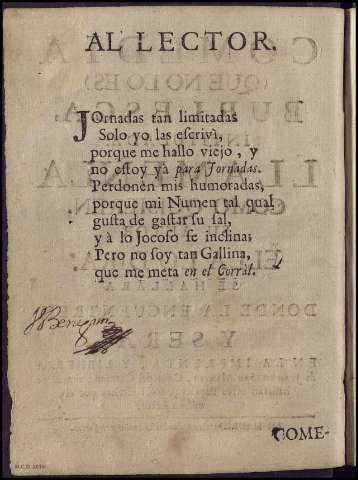 AL LECTOR.
JOrnadas tan limitadas
Solo yo las escrivì,
porque me hallo viejo, y
no estoy yà para Jornadas.
Perdonen mis humoradas,
porque mi Numen tal qual
gusta de gastar su sal,
y à lo Jocoso se inclina;
Pero no soy tan Gallina,
que me meta en el Corràl.
COME-